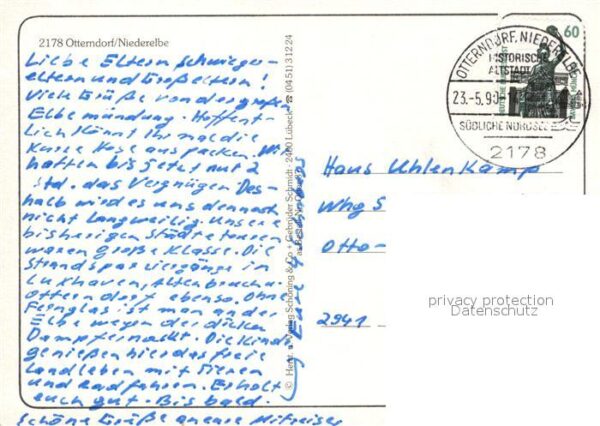 2178 Otterndorf/Niederelbe
Liebe Eltern, Schwieger-
eltern und Großeltern!
Viele Grüße von der großen
Elbemündung. Hoffent-
lich könnt Ihr mal die
kurze Hose auspacken. Wir
hatten bis jetzt auf 2
Std. das Vergnügen Des-
halb wird es uns dennoch
nicht langweilig. Unsere
bisherigen Städtetouren
waren große Klasse. Die
Strandspaziergänge in
Cuxhaven, Altenbruch u.
Otterndorf ebenso. Ohne
Fernglas ist man an der
Elbe wegen der dicken
Dampfer nackt. Die Kinder
genießen hier das freie
Landleben mit Tieren
und Radfahren. Erholt
euch gut. Bis bald.
Schöne Grüße an eure Mitreiser
Eure 4
© Herst. u. Verlag Schöning & Co + Gebrüder Schmidt · 2400 Lübeck ☎ (04 51) 3 12 24
60
DEUTSCHE BUNDESPOST
OTTERNDORF, NIEDERELBE
HISTORISCHE
ALTSTADT
23.-5.9
SÜDLICHE NORDSEE
2178
Hans Uhlenkamp
Whg 5
Otto-
2941
privacy protection
Datenschutz